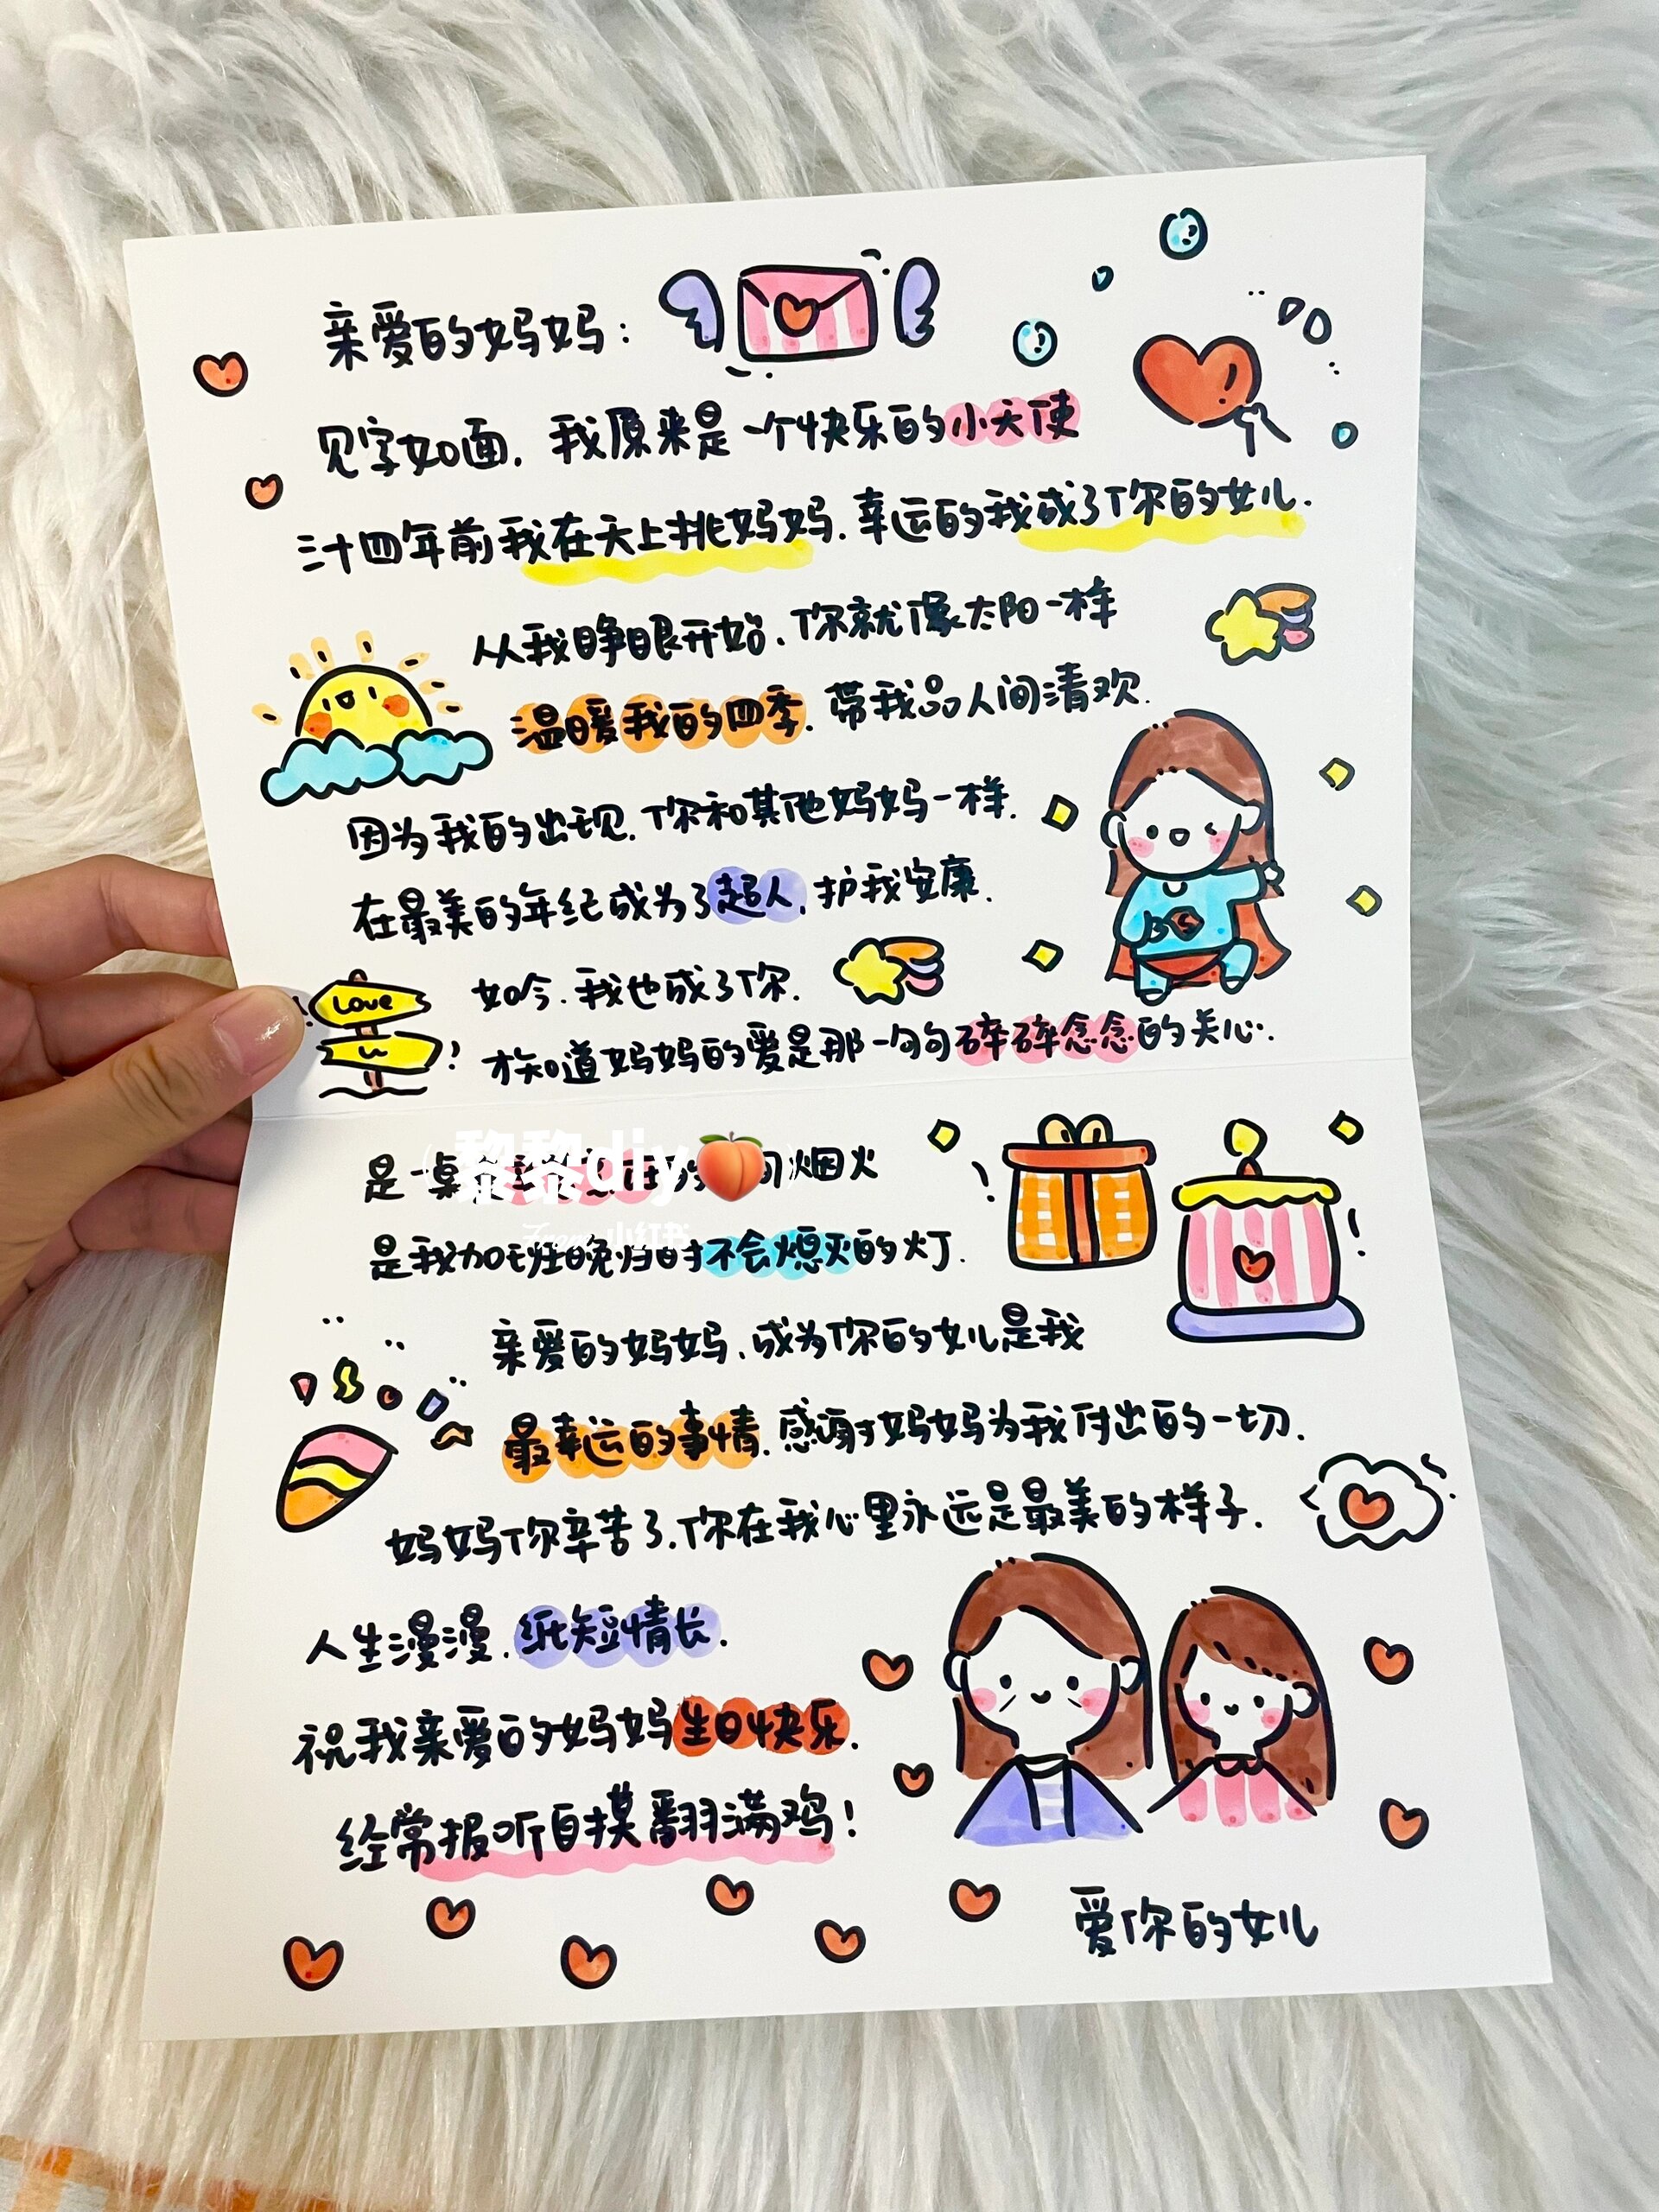 亲爱的妈妈：
见字如面，我原来是一个快乐的小天使
三十四年前我在天上挑妈妈，幸运的我成了你的女儿.
从我睁眼开始，你就像太阳一样
温暖我的四季，带我品人间清欢.
因为我的出现，你和其他妈妈一样.
在最美的年纪成为了超人，护我安康.
如今，我也成了你.
Love
u
才知道妈妈的爱是那一句句碎碎念念的关心.
黎黎diy🍑
是一桌的间烟火
From 小红书
是我加班晚归时不会熄灭的灯.
亲爱的妈妈，成为你的女儿是我
最幸运的事情，感谢妈妈为我付出的一切.
妈妈你辛苦了，你在我心里永远是最美的样子.
人生漫漫，纸短情长.
祝我亲爱的妈妈生日快乐.
经常报听自摸翻满鸡！
爱你的女儿